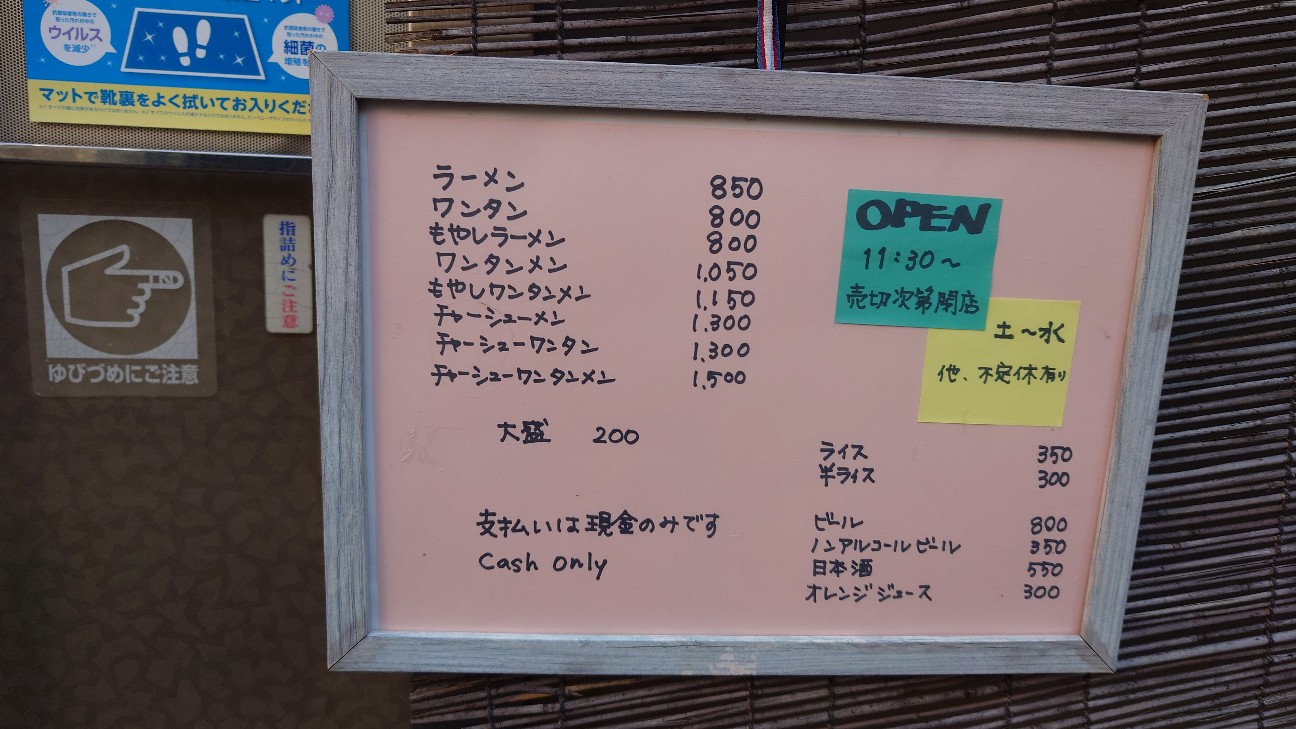 抗菌吸着剤の働きで
取った汚れの中の
ウイルス
を減少
細菌の
マットで靴裏をよく拭いてお入りくだ
指詰めにご注意
ゆびづめにご注意
ラーメン 850
ワンタン 800
もやしラーメン 800
ワンタンメン 1,050
もやしワンタンメン 1,150
チャーシューメン 1,300
チャーシューワンタン 1,300
チャーシューワンタンメン 1,500
大盛 200
支払いは現金のみです
Cash only
OPEN
11:30〜
売切次第閉店
土〜水
他、不定休有り
ライス 350
半ライス 300
ビール 800
ノンアルコールビール 350
日本酒 550
オレンジジュース 300